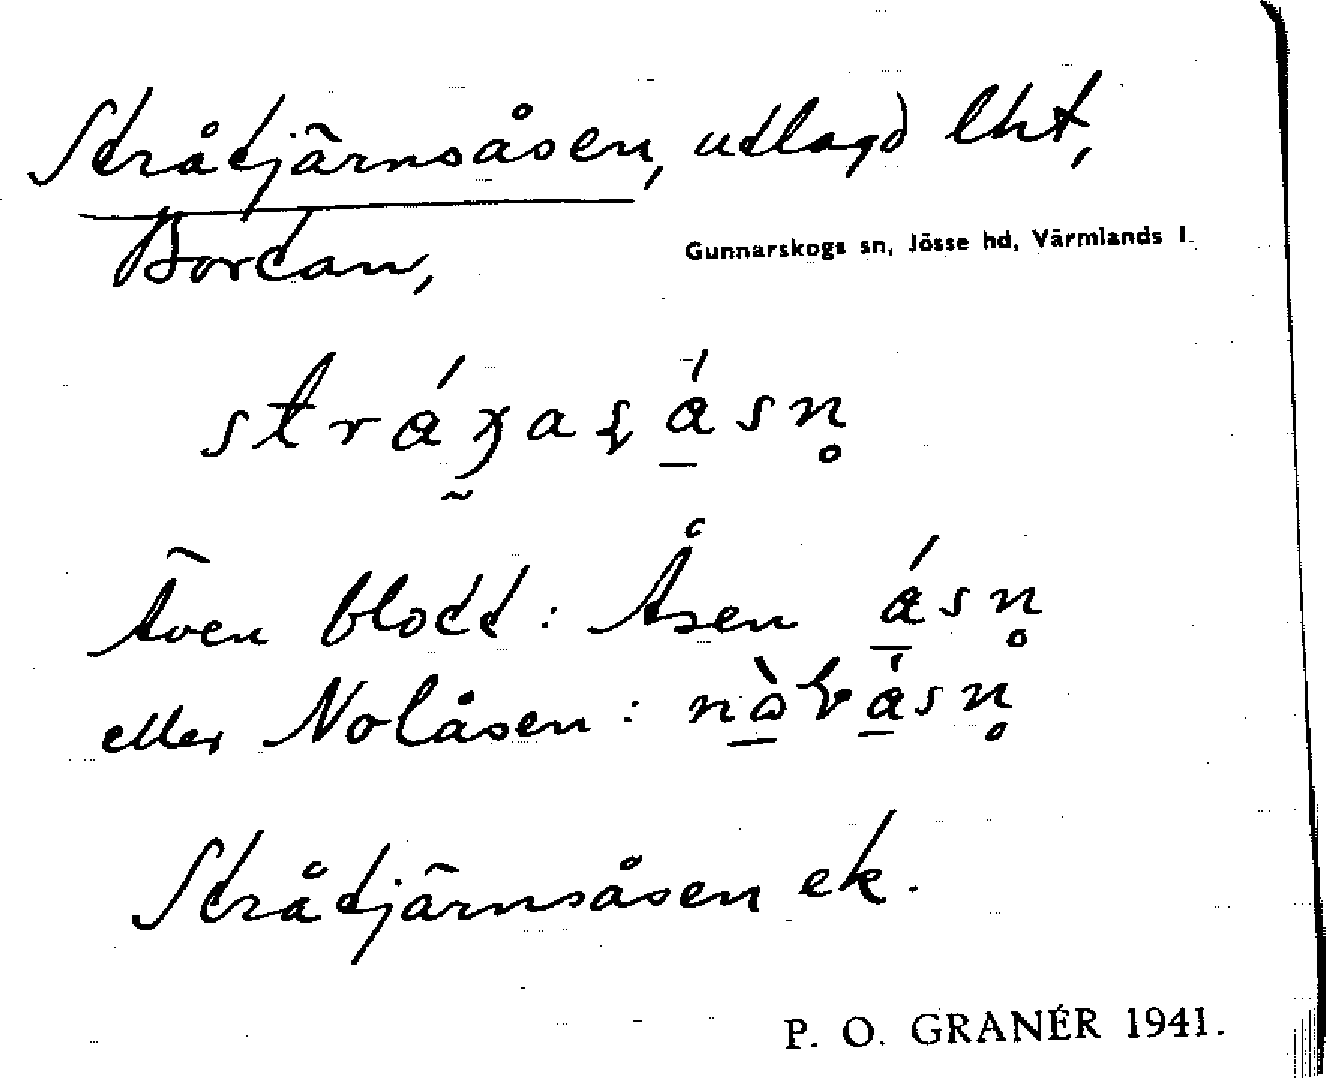 Stråtjärnsåsen, utlagd lht,
Bortan,
Gunnarskogs sn, Jösse hd, Värmlands l.
Även blott: Åsen ásn̥
eller Nolåsen:
Stråtjärnsåsen ek.
P. O. GRANÉR 1941.